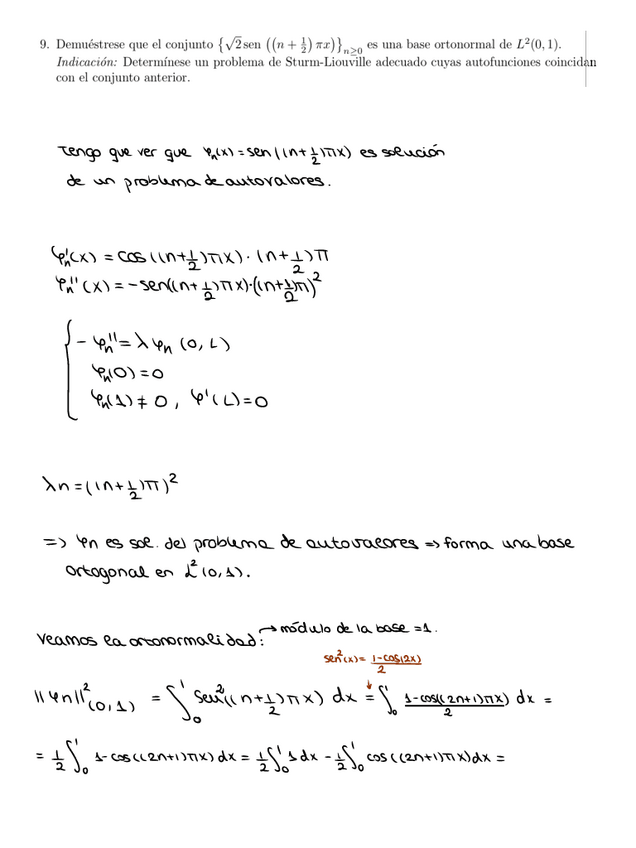 9. Demuéstrese que el conjunto {√2 sen ((n + 1/2) πx)}ₙ≥₀ es una base ortonormal de L²(0, 1).
Indicación: Determínese un problema de Sturm-Liouville adecuado cuyas autofunciones coincidan
con el conjunto anterior.
Tengo que ver que φₙ(x) = sen((n+1/2)πx) es solución
de un problema de autovalores.
φₙ'(x) = cos((n+1/2)πx)·(n+1/2)π
φₙ''(x) = -sen((n+1/2)πx)·((n+1/2)π)²
{ -φₙ'' = λφₙ (0, L)
φₙ(0) = 0
φₙ(1) ≠ 0, φ'(L) = 0
λn = ((n+1/2)π)²
=> φn es sol. del problema de autovalores => forma una base
ortogonal en L²(0,1).
Veamos la ortonormalidad: → módulo de la base = 1.
sen²(x) = (1-cos(2x))/2
||φn||²(0,1) = ∫₀¹ sen²((n+1/2)πx) dx = ∫₀¹ (1-cos((2n+1)πx))/2 dx =
= 1/2 ∫₀¹ 1-cos((2n+1)πx)dx = 1/2 ∫₀¹ 1 dx - 1/2 ∫₀¹ cos((2n+1)πx)dx =